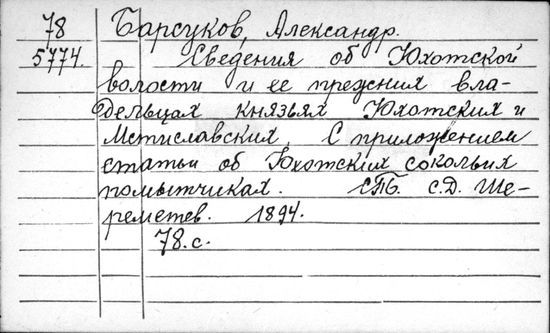 78 Барсуков, Александр.
5774. Сведения об Юхотской
волости и ее прежних вла-
дельцах князьях Юхотских и
Мстиславских. С приложением
статьи об Юхотских сокольих
помытчиках. СПБ. С.Д. Ше-
реметев. 1894.
78.с.